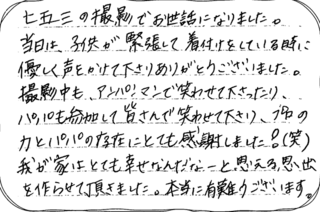 七五三の撮影でお世話になりました。
当日は、子供が緊張して着付けをしている時に
優しく声をかけて下さりありがとうございました。
撮影中も、アンパンマンで笑わせて下さったり、
パパも参加して皆さんで笑わせて下さり、プロの
力とパパの存在にとても感謝しました!(笑)
我が家はとても幸せなんだなーと思える思い出
を作らせて頂きました。本当に有難うございます。